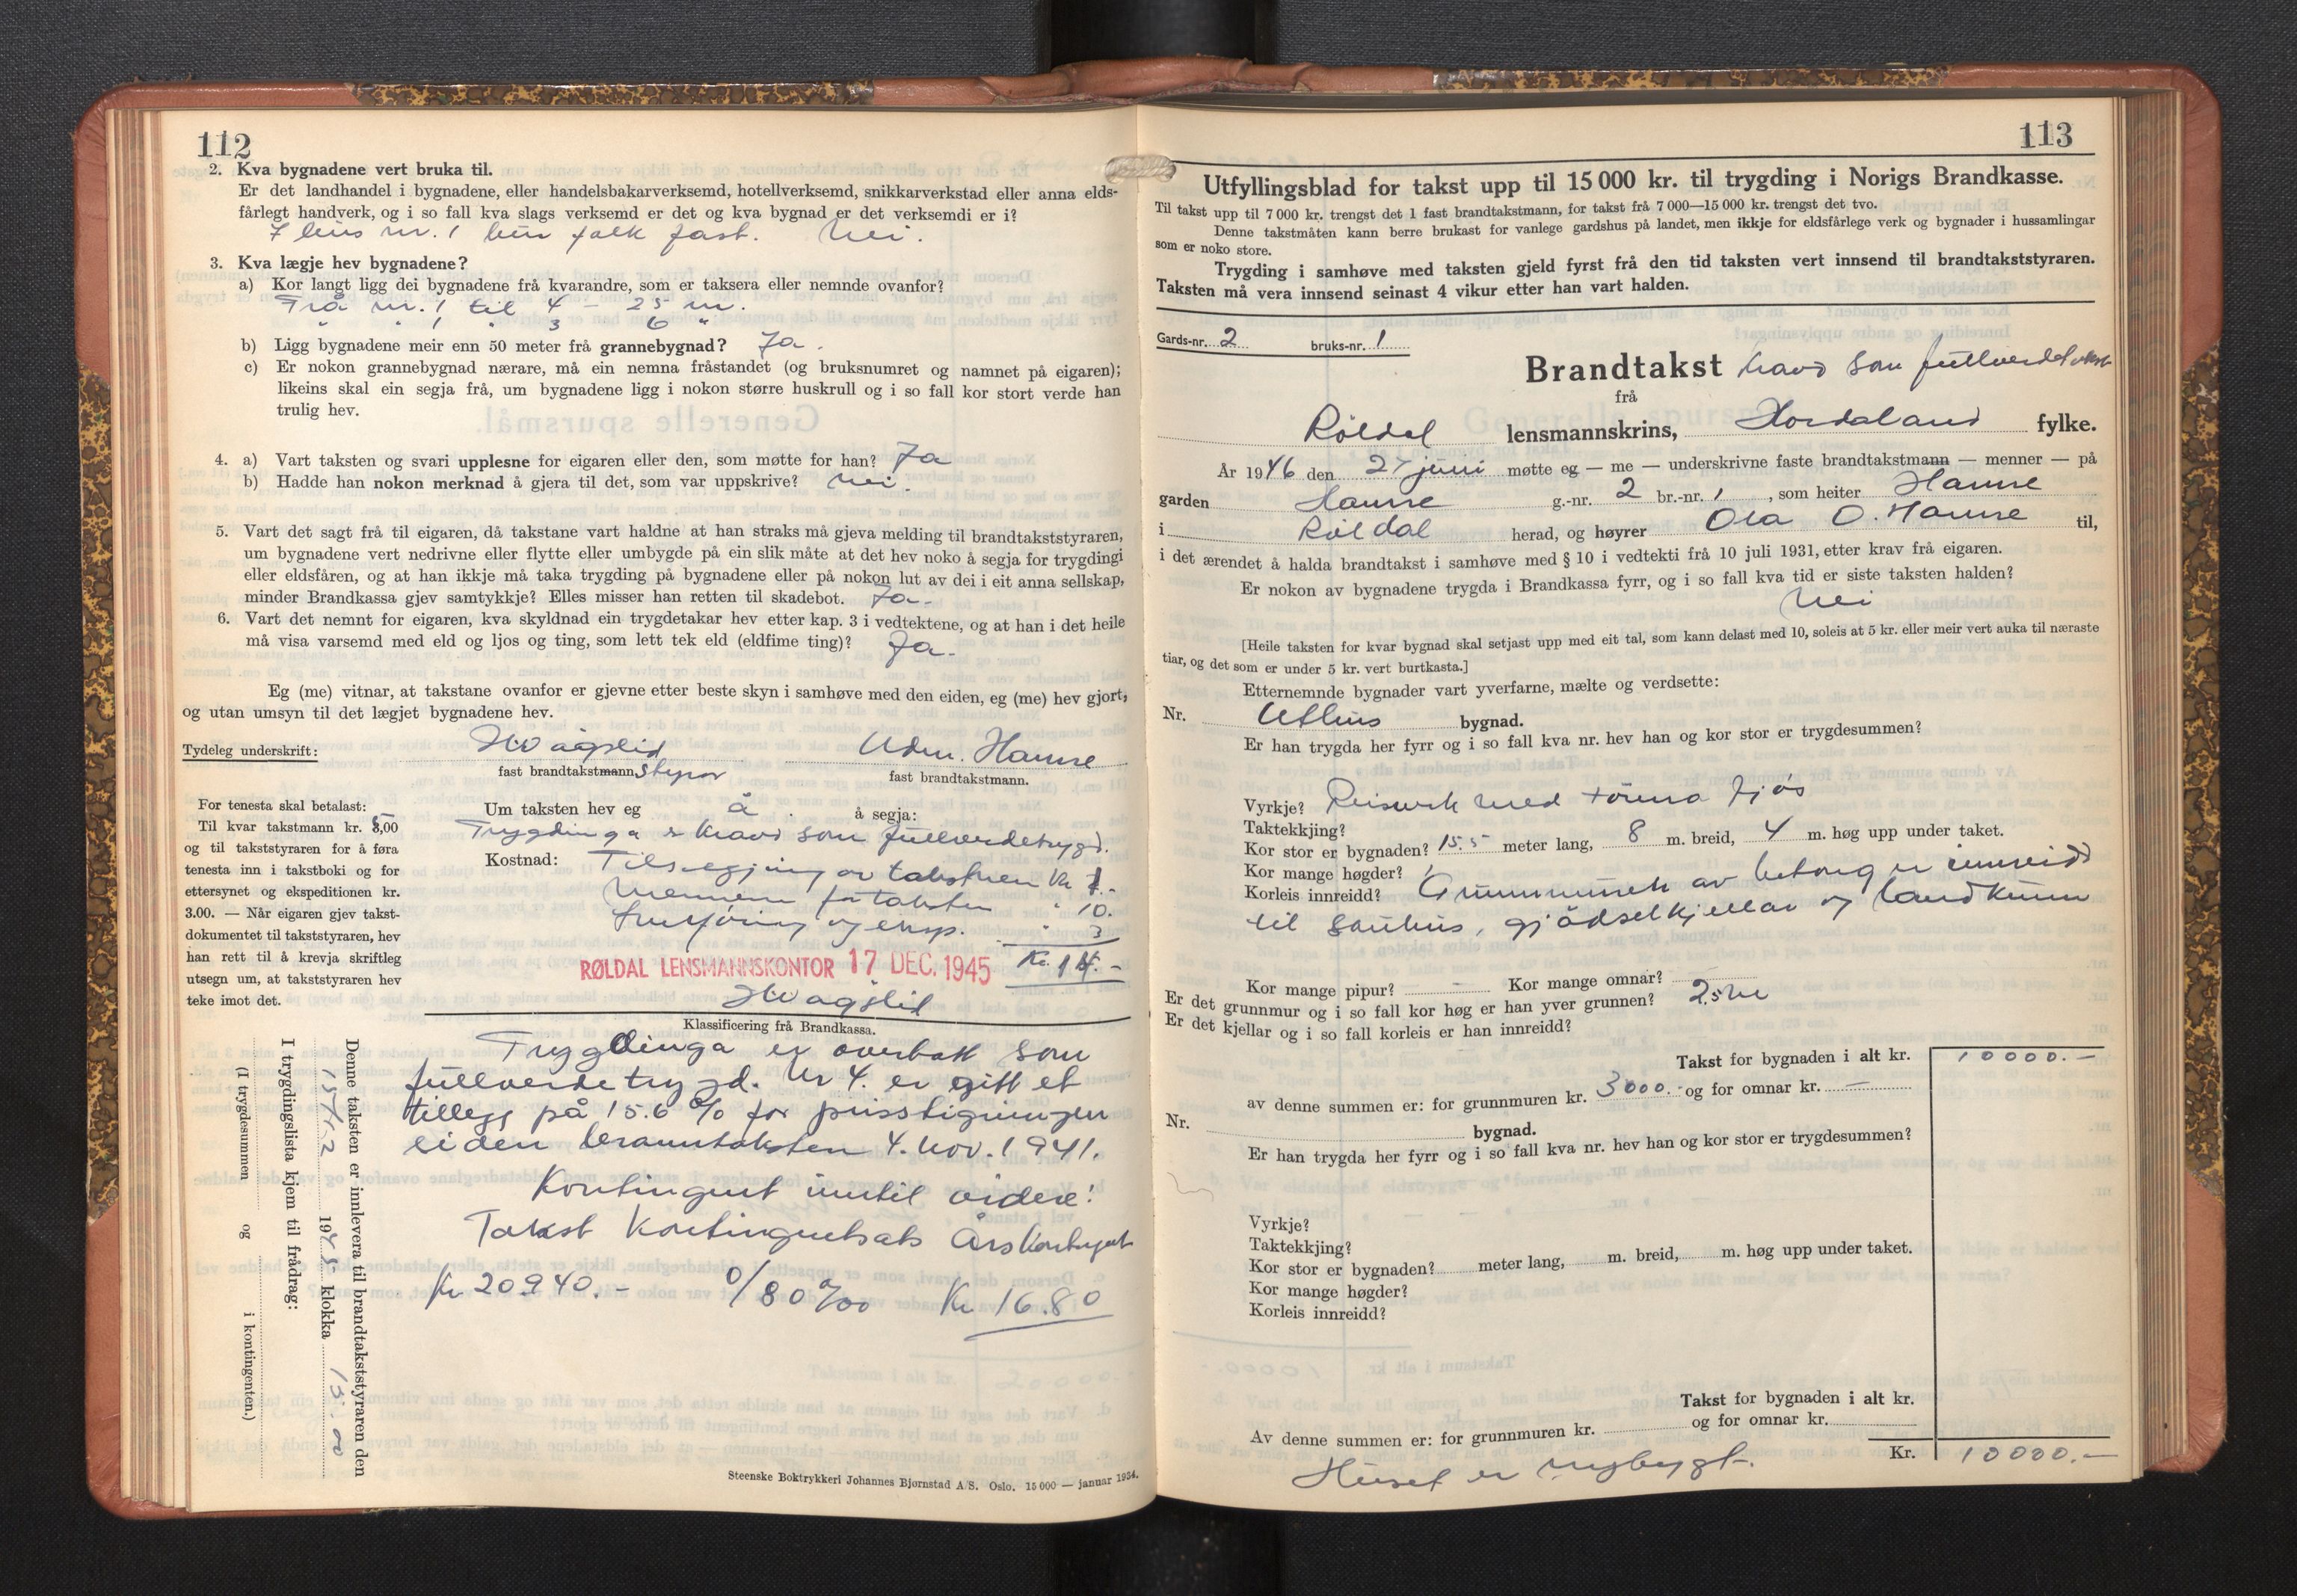 112
2. Kva bygnadene vert bruka til.
Er det landhandel i bygnadene, eller handelsbakarverksemd, hotellverksemd, snikkarverkstad eller anna elds-
fårlegt handverk, og i so fall kva slags verksemd er det og kva bygnad er det verksemdi er i?
I hus nr. 1 bur folk fast. Nei.
3. Kva lægje hev bygnadene?
a) Kor langt ligg dei bygnadene frå kvarandre, som er taksera eller nemnde ovanfor?
Frå nr. 1 til 4 – 25 m.
" " 1 " 3 6 "
b) Ligg bygnadene meir enn 50 meter frå grannebygnad? Ja.
c) Er nokon grannebygnad nærare, må ein nemna fråstandet (og bruksnumret og namnet på eigaren);
likeins skal ein segja frå, um bygnadene ligg i nokon større huskrull og i so fall kor stort verde han
trulig hev.
4. a) Vart taksten og svari upplesne for eigaren eller den, som møtte for han? Ja
b) Hadde han nokon merknad å gjera til det, som var uppskrive? Nei.
5. Vart det sagt frå til eigaren, då takstane vart haldne at han straks må gjeva melding til brandtakststyraren,
um bygnadene vert nedrivne eller flytte eller umbygde på ein slik måte at det hev noko å segja for trygdingi
eller eldsfåren, og at han ikkje må taka trygding på bygnadene eller på nokon lut av dei i eit anna sellskap,
minder Brandkassa gjev samtykkje? Elles misser han retten til skadebot. Ja.
6. Vart det nemnt for eigaren, kva skyldnad ein trygdetakar hev etter kap. 3 i vedtektene, og at han i det heile
må visa varsemd med eld og ljos og ting, som lett tek eld (eldfime ting)? Ja.
Eg (me) vitnar, at takstane ovanfor er gjevne etter beste skyn i samhøve med den eiden, eg (me) hev gjort,
og utan umsyn til det lægjet bygnadene hev.
Tydeleg underskrift: Hamre
fast brandtakstmann styrar fast brandtakstmann.
For tenesta skal betalast:
Til kvar takstmann kr. 5,00
og til takststyraren for å føra
tenesta inn i takstboki og for
ettersynet og ekspeditionen kr.
3.00. — Når eigaren gjev takst-
dokumentet til takststyraren, hev
han rett til å krevja skriftleg
utsegn um, at takststyraren hev
teke imot det.
Um taksten hev eg å å segja:
Trygdinga er kravd som fullverdetrygd.
Kostnad: Tilsegjing av takstmen Kr 1.-
Mennene for taksten " 10.
Innföring og eksp. " 3
RØLDAL LENSMANNSKONTOR 17 DEC. 1945 Kr. 14.-
Klassificering frå Brandkassa.
Trygdinga er overtatt som
fullverdetrygd. Nr 4. er gitt et
tillegg på 15.6 % for prisstigningen
siden branntaksten 4. nov. 1941.
Kontingent inntil videre:
Takst Kontingentsats Årskontingent
Kr 20.940.- 0/80 ‰ Kr 16.80
Denne taksten er innlevera til brandtakststyraren den
15/12 1945 klokka 15.00
I trygdingslista kjem til frådrag:
(I trygdesummen og i kontingenten.)
Steenske Boktrykkeri Johannes Bjørnstad A/S. Oslo. 15 000 — januar 1934.
113
Utfyllingsblad for takst upp til 15 000 kr. til trygding i Norigs Brandkasse.
Til takst upp til 7 000 kr. trengst det 1 fast brandtakstmann, for takst frå 7 000—15 000 kr. trengst det tvo.
Denne takstmåten kann berre brukast for vanlege gardshus på landet, men ikkje for eldsfårlege verk og bygnader i hussamlingar
som er noko store.
Trygding i samhøve med taksten gjeld fyrst frå den tid taksten vert innsend til brandtakststyraren.
Taksten må vera innsend seinast 4 vikur etter han vart halden.
Gards-nr. 2 bruks-nr. 1
Brandtakst kravd som fullverdetakst
frå
Röldal lensmannskrins, Hordaland fylke.
År 1946 den 27 juni møtte eg — me — underskrivne faste brandtakstmann — menner — på
garden Hamre g.-nr. 2 br.-nr. 1, som heiter Hamre
i Röldal herad, og høyrer Ola O. Hamre til,
i det ærendet å halda brandtakst i samhøve med § 10 i vedtekti frå 10 juli 1931, etter krav frå eigaren.
Er nokon av bygnadene trygda i Brandkassa fyrr, og i so fall kva tid er siste taksten halden?
Nei
[Heile taksten for kvar bygnad skal setjast upp med eit tal, som kann delast med 10, soleis at 5 kr. eller meir vert auka til næraste
tiar, og det som er under 5 kr. vert burtkasta.]
Etternemnde bygnader vart yverfarne, mælte og verdsette:
Nr. Uthus bygnad.
Er han trygda her fyrr og i so fall kva nr. hev han og kor stor er trygdesummen?
Vyrkje? Reisverk med fjös
Taktekkjing?
Kor stor er bygnaden? 15.5 meter lang, 8 m. breid, 4 m. høg upp under taket.
Kor mange høgder? 1
Korleis innreidd? Grunnmuren av betong er innreidd
til sauhus, gjödselkjellar og landkum
Kor mange pipur? - Kor mange omnar?
Er det grunnmur og i so fall kor høg er han yver grunnen? 2.5 m
Er det kjellar og i so fall korleis er han innreidd?
Takst for bygnaden i alt kr. 10000.—
av denne summen er: for grunnmuren kr. 3000.- og for omnar kr. —
Nr. bygnad.
Er han trygda her fyrr og i so fall kva nr. hev han og kor stor er trygdesummen?
Vyrkje?
Taktekkjing?
Kor stor er bygnaden? meter lang, m. breid, m. høg upp under taket.
Kor mange høgder?
Korleis innreidd?
Takst for bygnaden i alt kr.
Av denne summen er: for grunnmuren kr. og for omnar kr.
Kr. 10000.—
Huset er nybygt.